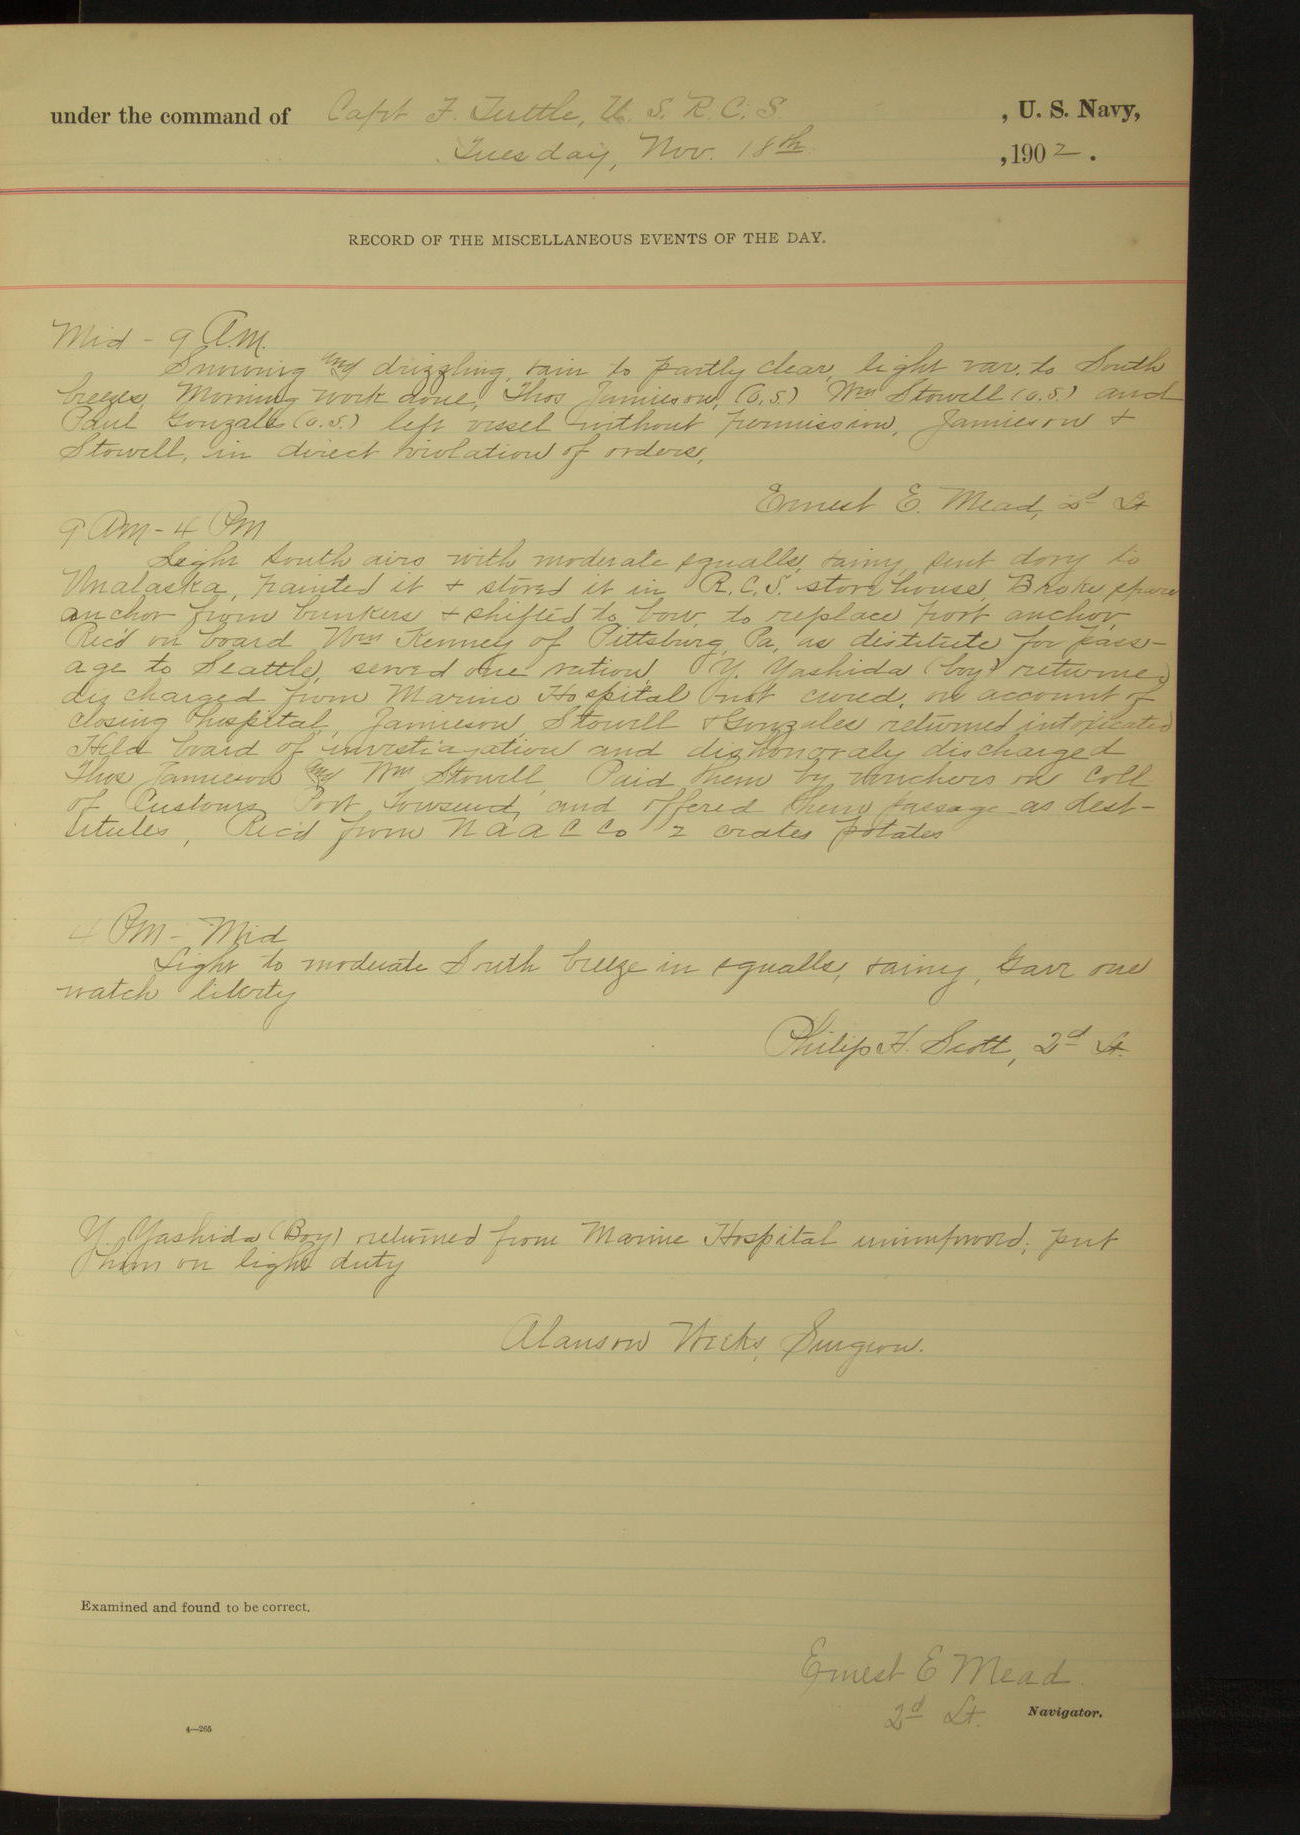 under the command of Capt F. Tuttle, U. S. R. C. S. , U. S. Navy,
Tuesday, Nov. 18th ,1902.
RECORD OF THE MISCELLANEOUS EVENTS OF THE DAY.
Mid - 9 A.M.
Snowing and drizzling rain to partly clear, light var. to South
breezes, Morning work done, Thos Jamieson, (O.S.) Wm Stowell (O.S.) and
Paul Gonzales (O.S.) left vessel without permission, Jamieson +
Stowell, in direct violation of orders,
Ernest E. Mead, 2d Lt
9 AM - 4 PM
Light South airs with moderate squalls, rainy, sent dory to
Unalaska, painted it + stored it in R.C.S. store house, Broke spare
anchor from bunkers + shifted to bow, to replace port anchor,
Rec'd on board Wm Kenney of Pittsburg, Pa, as distitute for pass-
age to Seattle, served one ration, Y. Yashida (boy) returned
discharged from Marine Hospital not cured, on account of
closing hospital, Jamieson Stowell & Gonzales returned intoxicated
Held board of investigation and dishonoraly discharged
Thos Jamieson and Wm Stowell, Paid them by vouchers on Coll
of Customs, Port Townsend, and offered them passage as dest-
itutes, Rec'd from N A A C Co 2 crates potates
4 PM - Mid
Light to moderate South breeze in squalls, rainy, Gave one
watch liberty
Philip H. Scott, 2d Lt.
Y. Yashida (Boy) returned from Marine Hospital unimproved; put
him on light duty
Alanson Weeks, Surgeon.
Examined and found to be correct.
Ernest E Mead
2d Lt. Navigator.
4—265